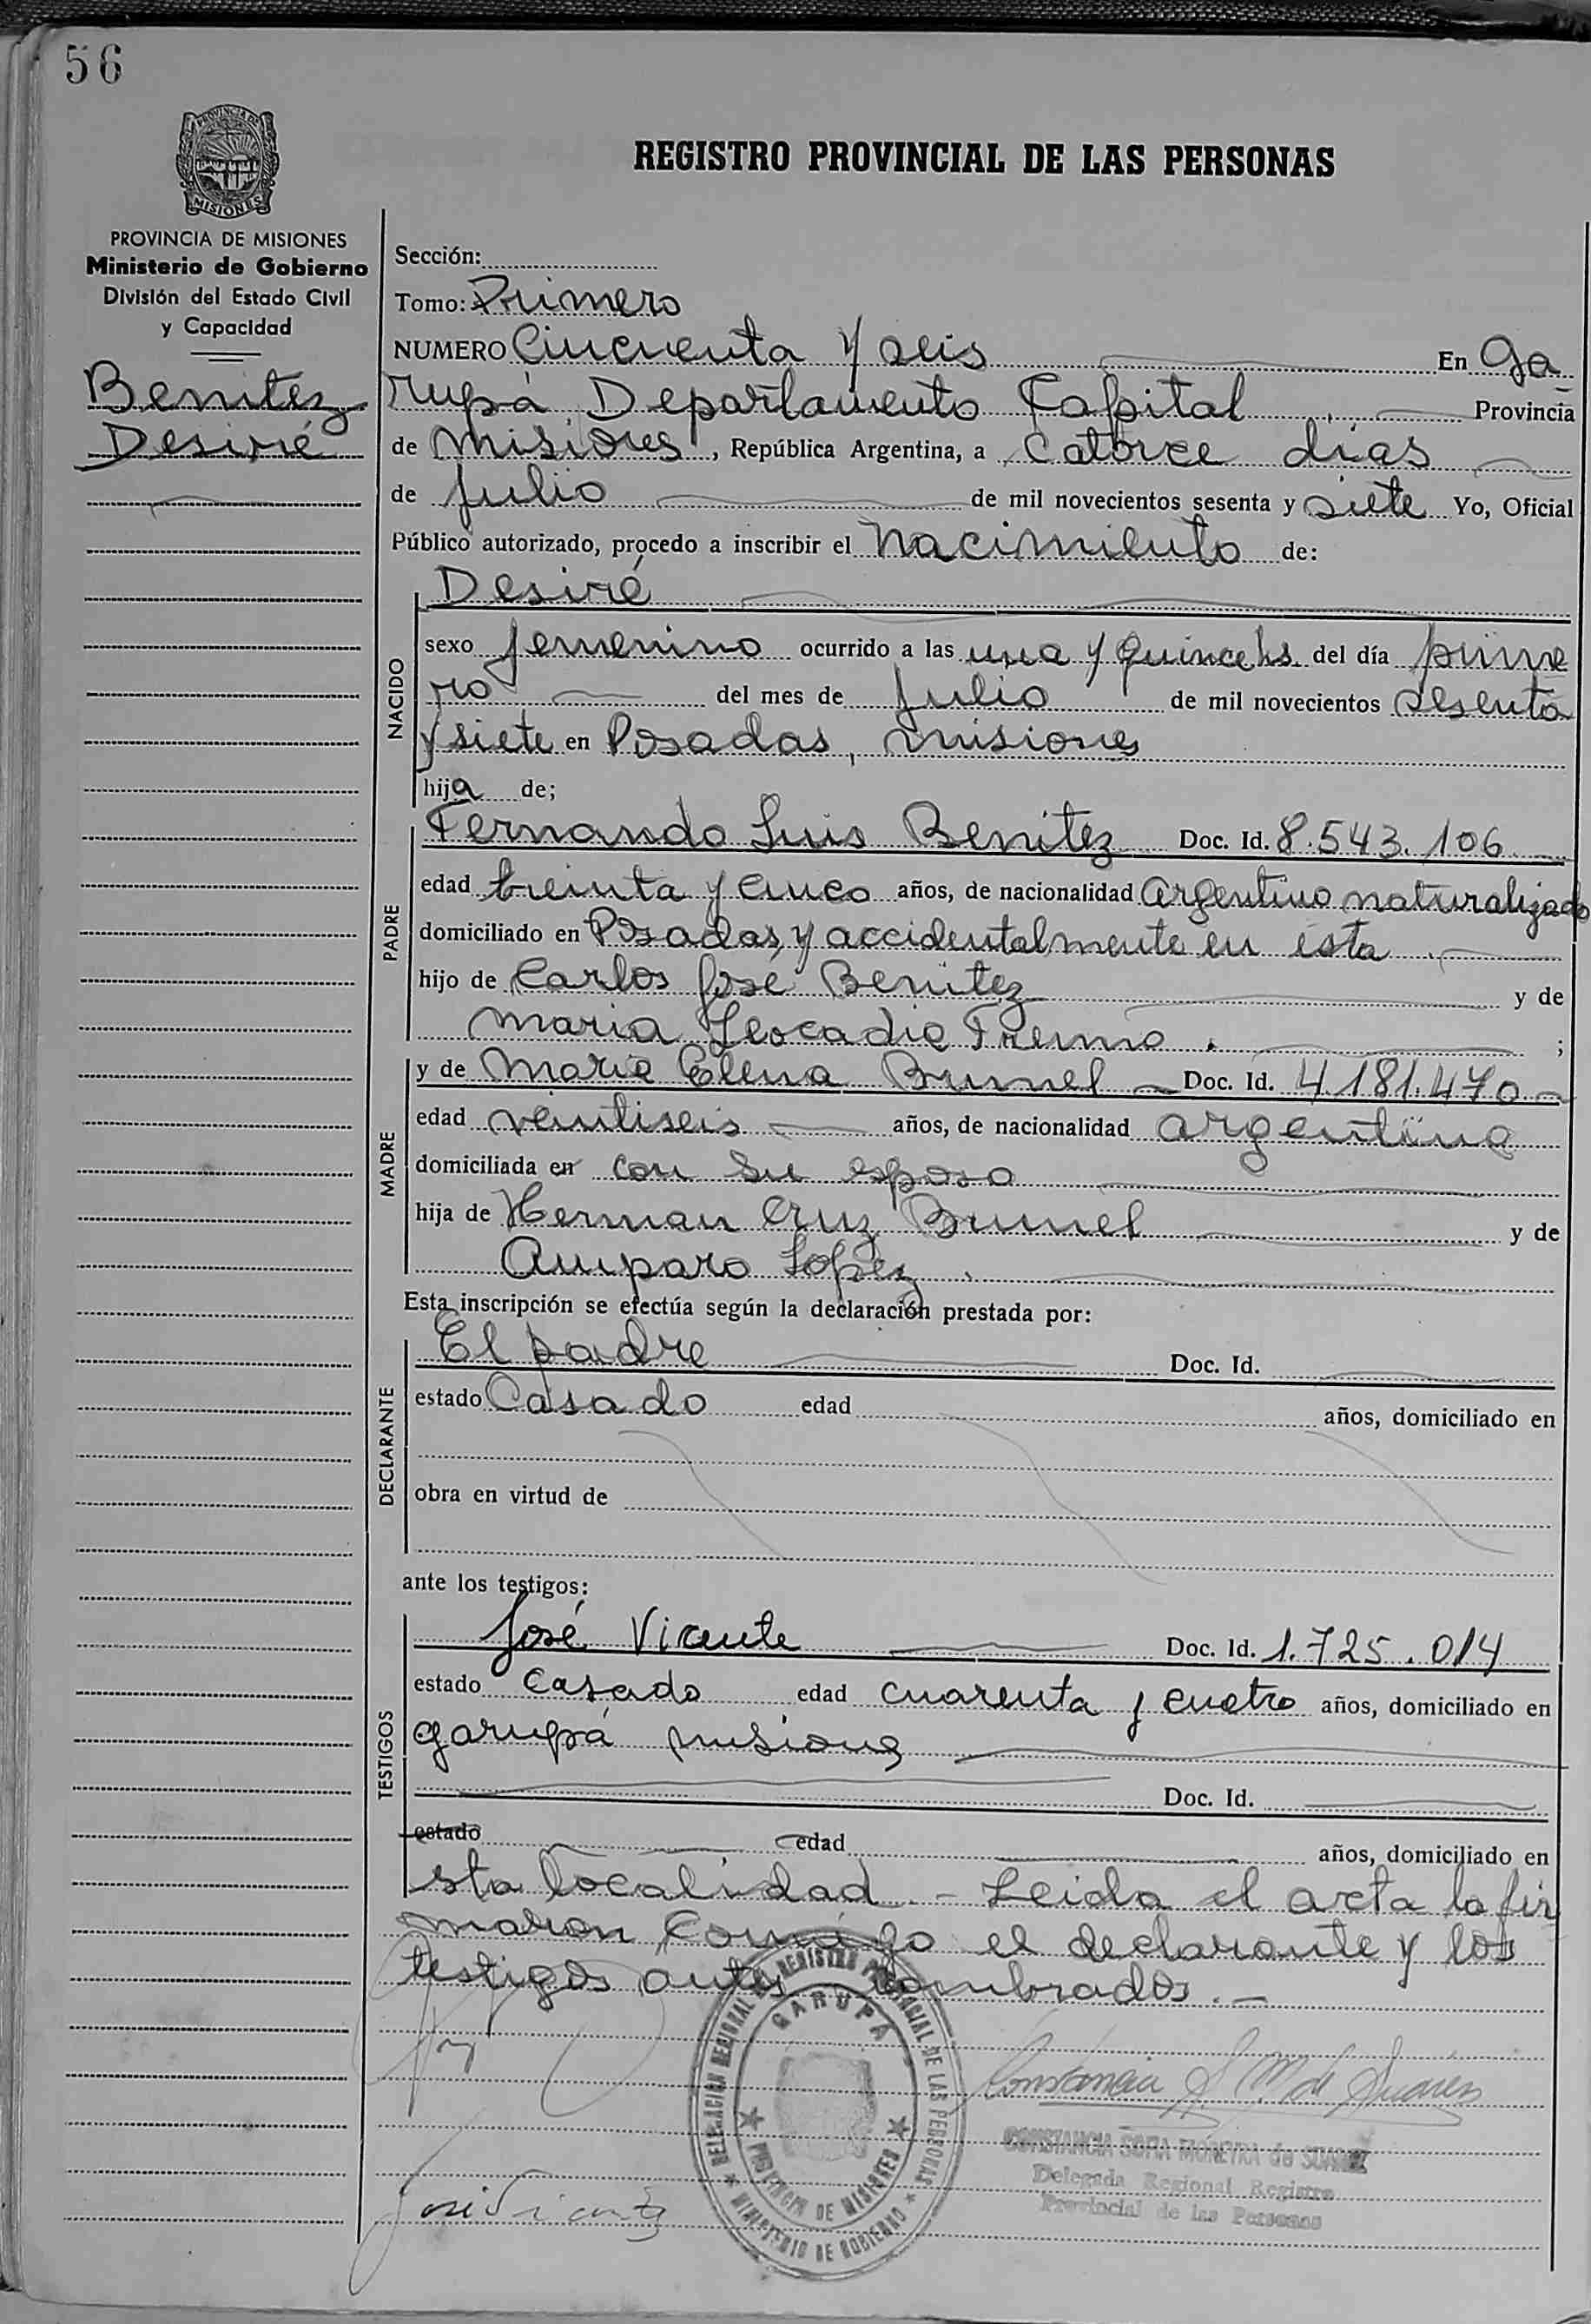 56
PROVINCIA DE
MISIONES
REGISTRO PROVINCIAL DE LAS PERSONAS
PROVINCIA DE MISIONES
Ministerio de Gobierno
División del Estado Civil
y Capacidad
Benitez
Desiré
Sección:
Tomo: Primero
NUMERO Cincuenta y seis En Ga
rupá Departamento Capital, Provincia
de Misiones, República Argentina, a Catorce dias
de Julio de mil novecientos sesenta y siete Yo, Oficial
Público autorizado, procedo a inscribir el nacimiento de:
Desiré
NACIDO
sexo femenino ocurrido a las una y quince hs. del día prime
ro del mes de Julio de mil novecientos sesenta
y siete en Posadas, misiones
hija de;
PADRE
Fernando Luis Benitez Doc. Id. 8.543.106
edad treinta y cinco años, de nacionalidad argentino naturalizado
domiciliado en Posadas y accidentalmente en ésta.
hijo de Carlos José Benitez y de
maria Leocadia ;
MADRE
y de Maria Elena Brunel Doc. Id. 4.181.470
edad veintiseis años, de nacionalidad argentina
domiciliada en con su esposo
hija de Herman Cruz Brunel y de
Amparo Lopez.
Esta inscripción se efectúa según la declaración prestada por:
DECLARANTE
El padre Doc. Id.
estado Casado edad años, domiciliado en
obra en virtud de
ante los testigos:
TESTIGOS
José Vicente Doc. Id. 1.725.014
estado Casado edad cuarenta y cuatro años, domiciliado en
garupá misiones
Doc. Id.
estado edad años, domiciliado en
sta localidad.- Leida el acta la fir
maron Comigo el declarante y los
testigos antes nombrados.-
DELEGACION REGIONAL DEL REGISTRO PROVINCIAL DE LAS PERSONAS
GARUPÁ
PROVINCIA DE MISIONES
MINISTERIO DE GOBIERNO
Constancia S. M. de Suárez
CONSTANCIA SOFIA MOREYRA de SUAREZ
Delegada Regional Registro
Provincial de las Personas
José Vicente